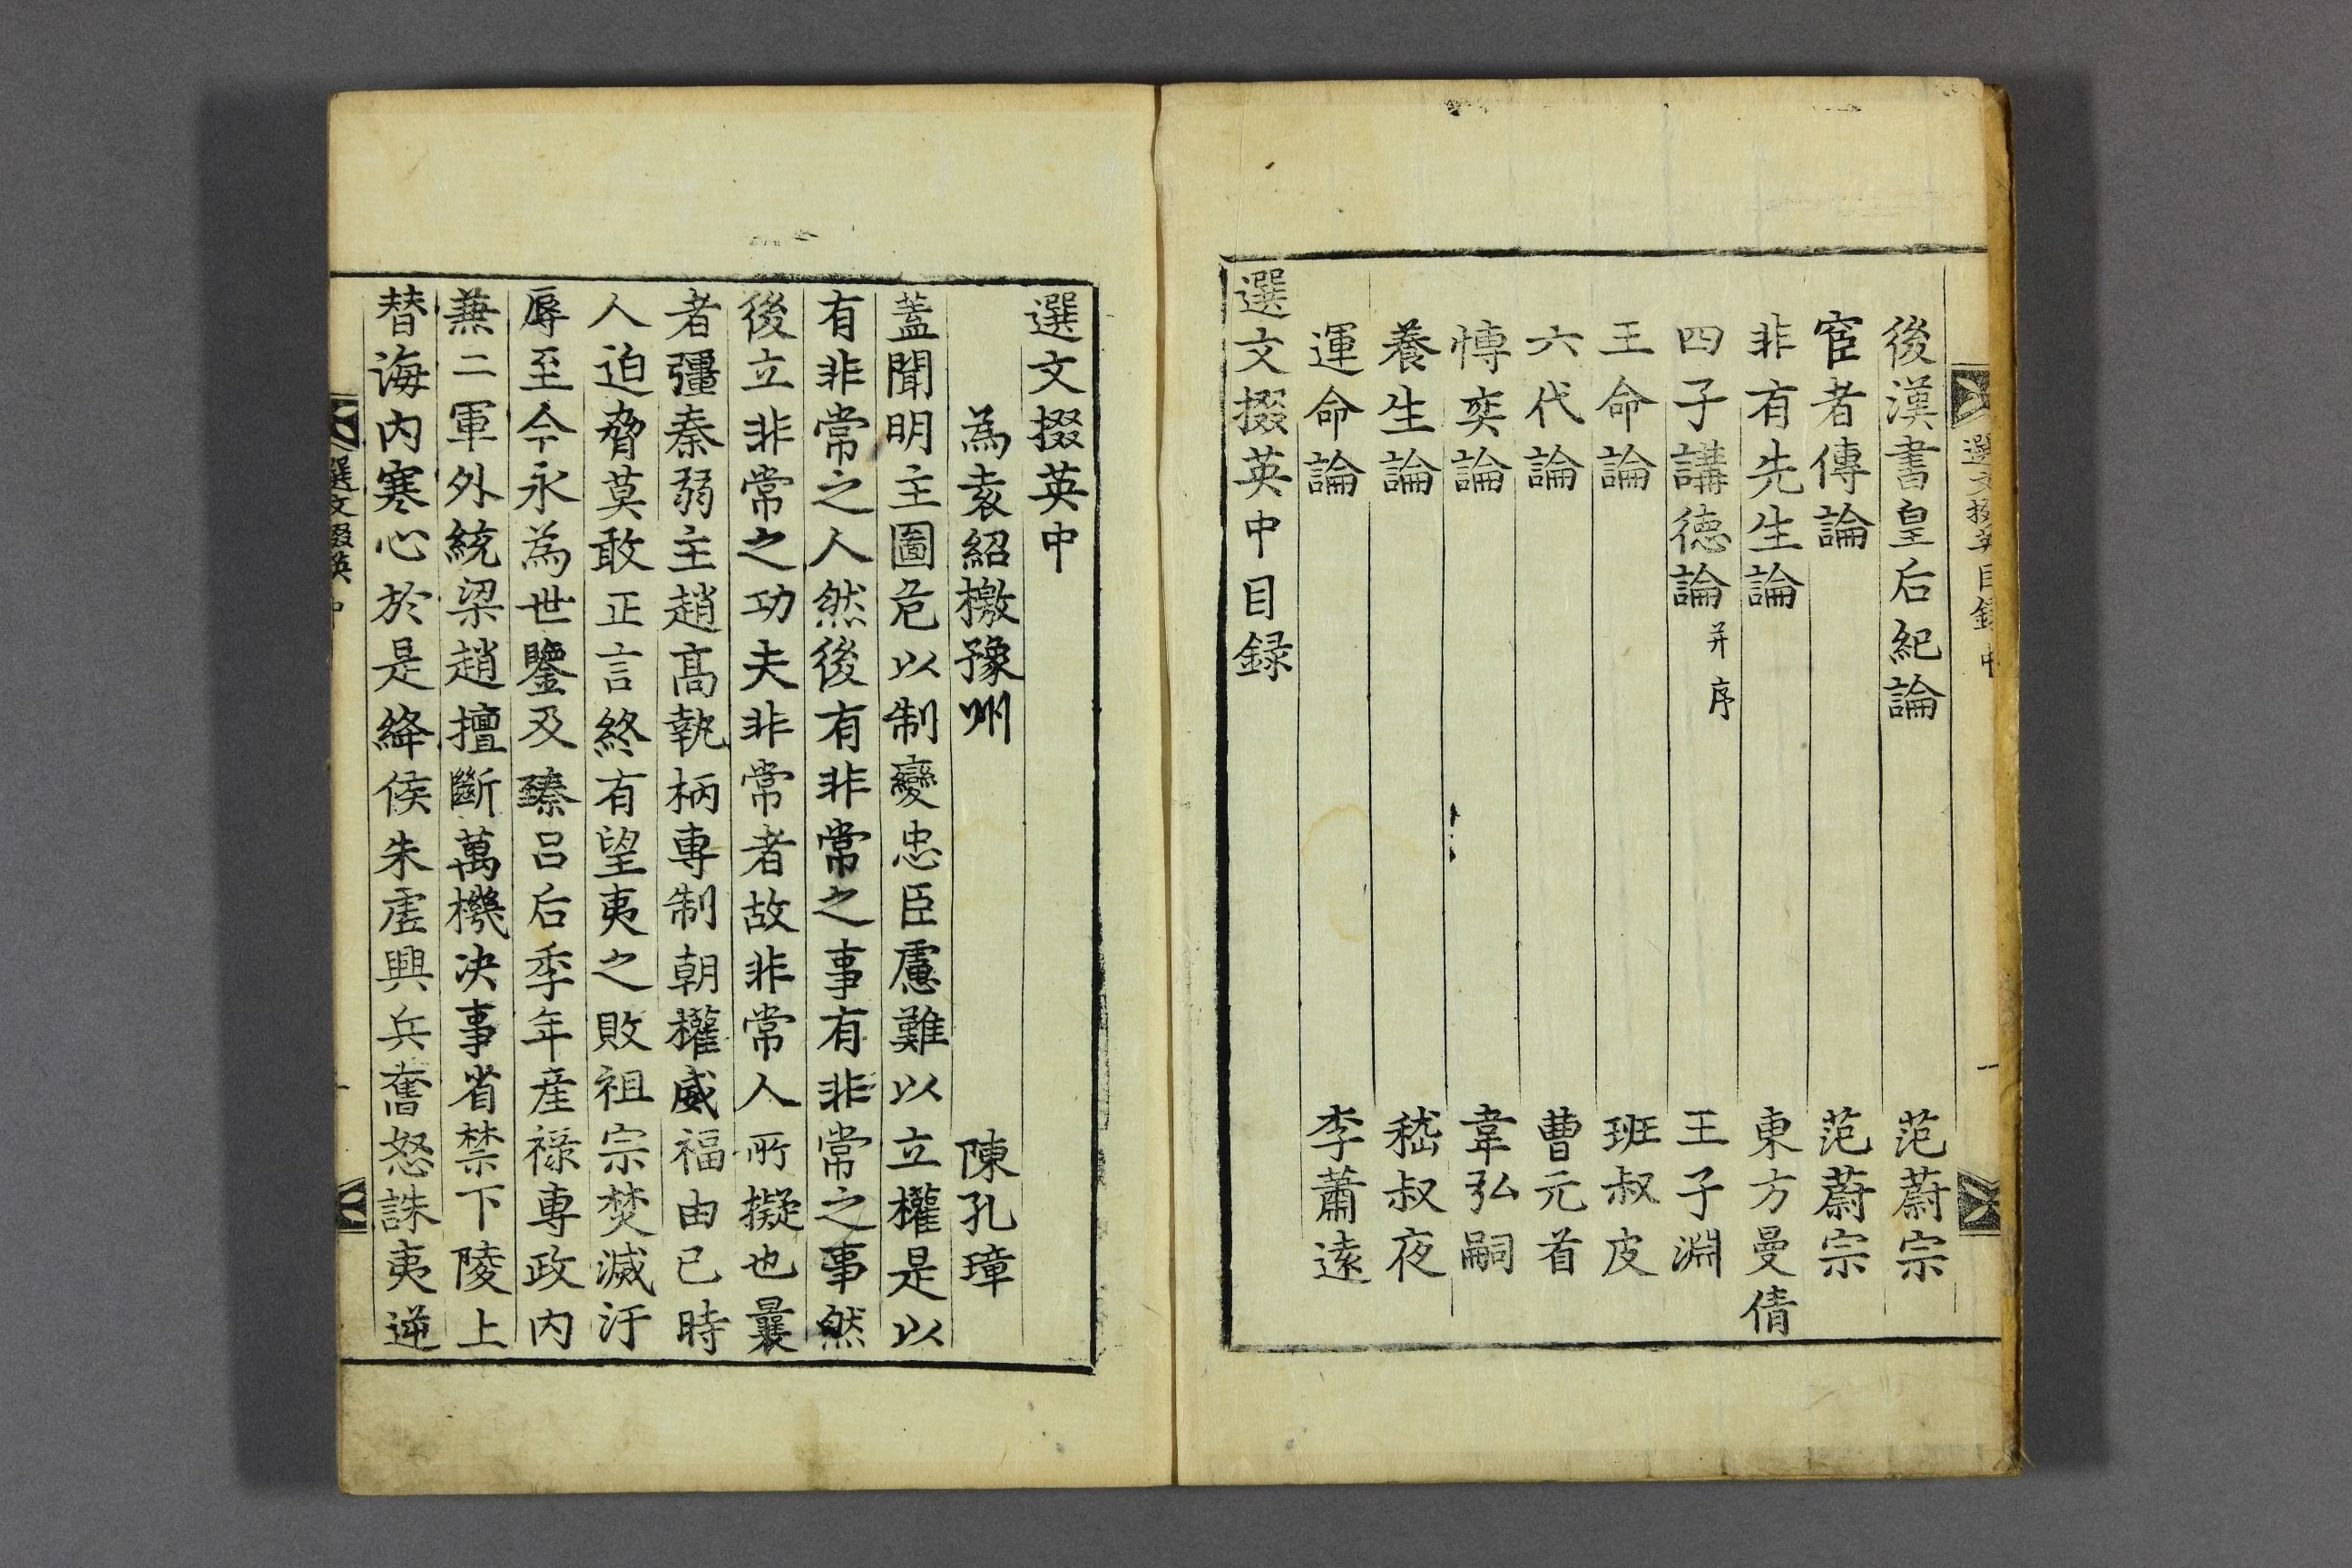 選文掇英目錄 中
一
後漢書皇后紀論 范蔚宗
宦者傳論 范蔚宗
非有先生論 東方曼倩
四子講德論 并序 王子淵
王命論 班叔皮
六代論 曹元首
博奕論 韋弘嗣
養生論 嵇叔夜
運命論 李蕭遠
選文掇英中目録
選文掇英中
為袁紹檄豫州 陳孔璋
蓋聞明主圖危以制變忠臣慮難以立權是以
有非常之人然後有非常之事有非常之事然
後立非常之功夫非常者故非常人所擬也曩
者彊秦弱主趙高執柄專制朝權威福由己時
人迫脅莫敢正言終有望夷之敗祖宗焚滅汙
辱至今永為世鑒及臻呂后季年産祿專政内
兼二軍外統梁趙擅斷萬機决事省禁下陵上
替海内寒心於是絳侯朱虛興兵奮怒誅夷逆
選文掇英 中
一